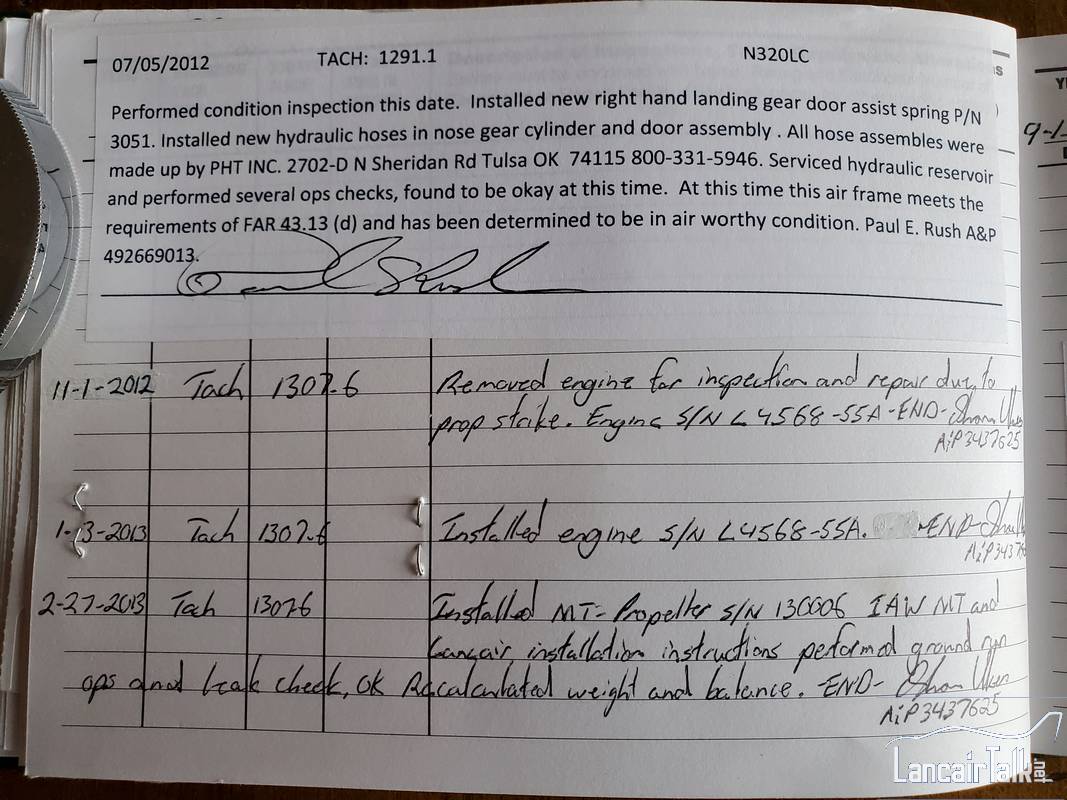 07/05/2012 TACH: 1291.1 N320LC
Performed condition inspection this date. Installed new right hand landing gear door assist spring P/N
3051. Installed new hydraulic hoses in nose gear cylinder and door assembly . All hose assembles were
made up by PHT INC. 2702-D N Sheridan Rd Tulsa OK 74115 800-331-5946. Serviced hydraulic reservoir
and performed several ops checks, found to be okay at this time. At this time this air frame meets the
requirements of FAR 43.13 (d) and has been determined to be in air worthy condition. Paul E. Rush A&P
492669013.
11-1-2012 Tach 1307.6 Removed engine for inspection and repair due to
prop strike. Engine S/N L4568-55A-END-
A&P3437625
1-3-2013 Tach 1307.6 Installed engine S/N L4568-55A. -END-
A&P3437
2-27-2013 Tach 1307.6 Installed MT-Propeller S/N 130006 IAW MT and
Lancair installation instructions performed ground run
ops and leak check, OK Recalculated weight and balance. END-
A&P3437625
LancairTalk.net